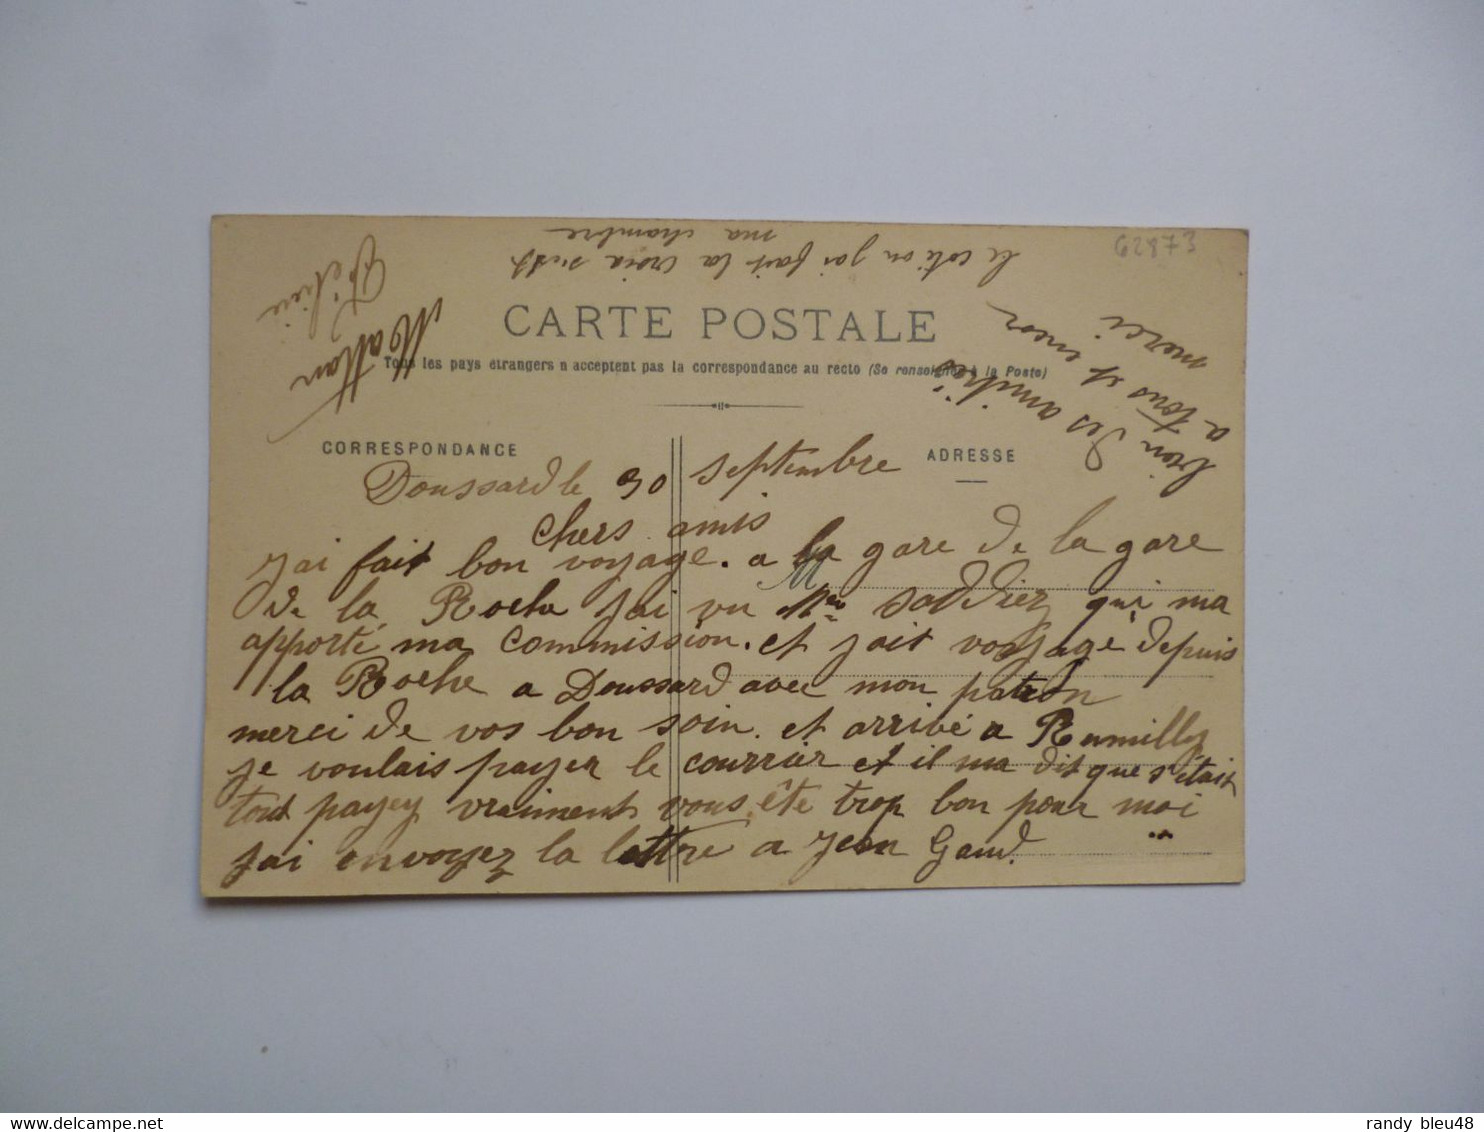 62873
le coti ou jai fait la croia sest
ma chambre
CARTE POSTALE
Tous les pays etrangers n acceptent pas la correspondance au recto (Se renseigner à la Poste)
CORRESPONDANCE
ADRESSE
Doussard le 30 septembre
chers amis
jai fait bon voyage. a la gare de la gare
de la Roche jai vu Mr soddiez qui ma
apporté ma commission. et jait voyagé depuis
la Roche a Doussard avec mon patron
merci de vos bon soin. et arrivé a Rumilly
je voulais payer le courrier et il ma dit que s'était
tout payey vraiment vous ête trop bon pour moi
jai envoyez la lettre a Jean Gaud.
bien des amitiés
a tous et
merci
Mattan
randy bleu48